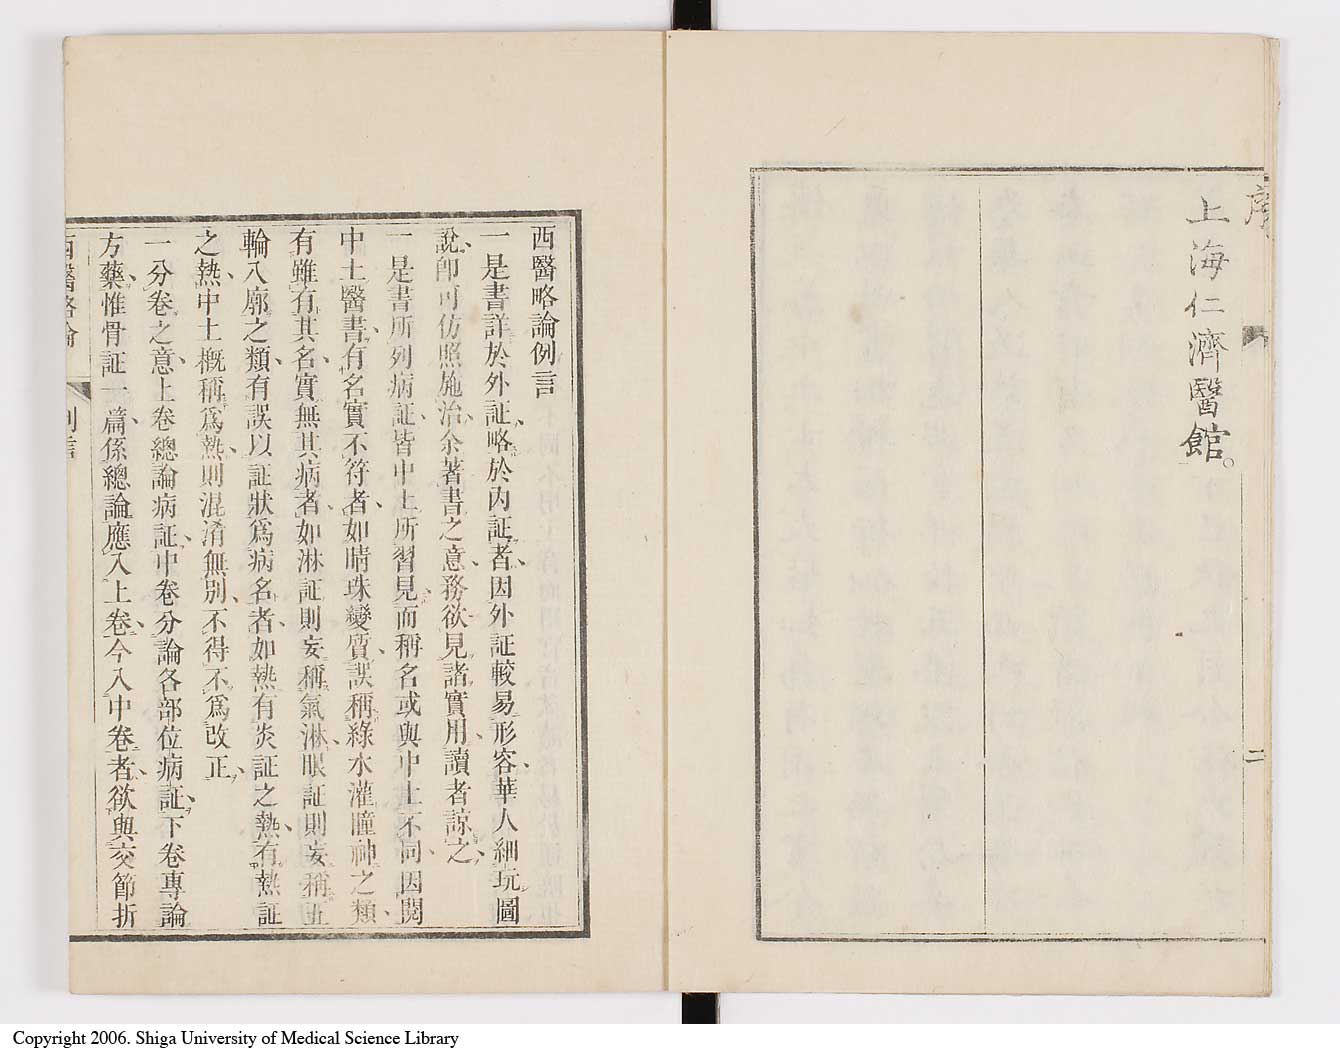 序
上海仁濟醫館。
二
西醫略論例言
一是書詳於外証、略於內証者、因外証較易形容、華人細玩圖
說、卽可仿照施治、余著書之意、務欲見諸實用、讀者諒之、
一是書所列病証、皆中土所習見、而稱名或與中土不同、因閱
中土醫書、有名實不符者、如睛珠變質、誤稱綠水灌瞳神之類、
有雖有其名、實無其病者、如淋証則妄稱氣淋、眼証則妄稱五
輪八廓之類、有誤以証狀爲病名者、如熱有炎証之熱、有熱証
之熱、中土槪稱爲熱、則混淆無別、不得不爲改正、
一分卷之意、上卷總論病証、中卷分論各部位病証、下卷專論
方藥、惟骨証一篇、係總論應入上卷、今入中卷者、欲與交節折
西醫略論
例言
Copyright 2006. Shiga University of Medical Science Library